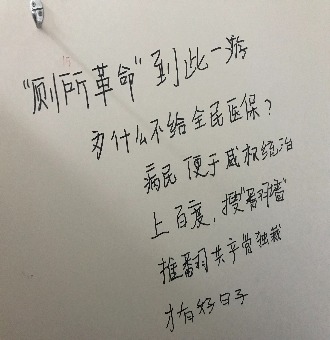 "厕所革命"到此一游
为什么不给全民医保?
病民 便于威权统治
上百度,搜"翻墙"
推翻共产党独裁
才有好日子